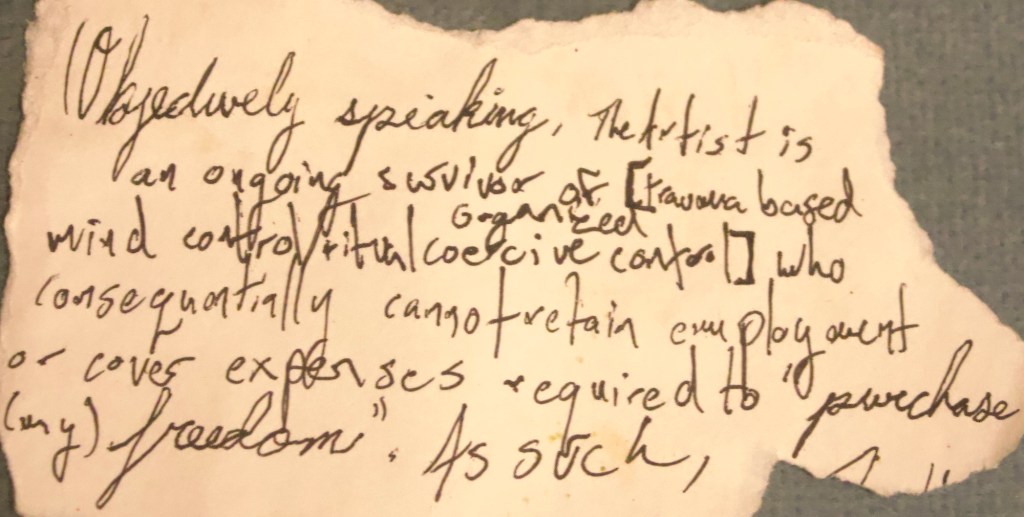 (Objectively speaking, The Artist is
an ongoing survivor of [trauma based
organized
mind control/ritual coercive control] who
consequentially cannot retain employment
or cover expenses required to "purchase
(my) freedom". As such,